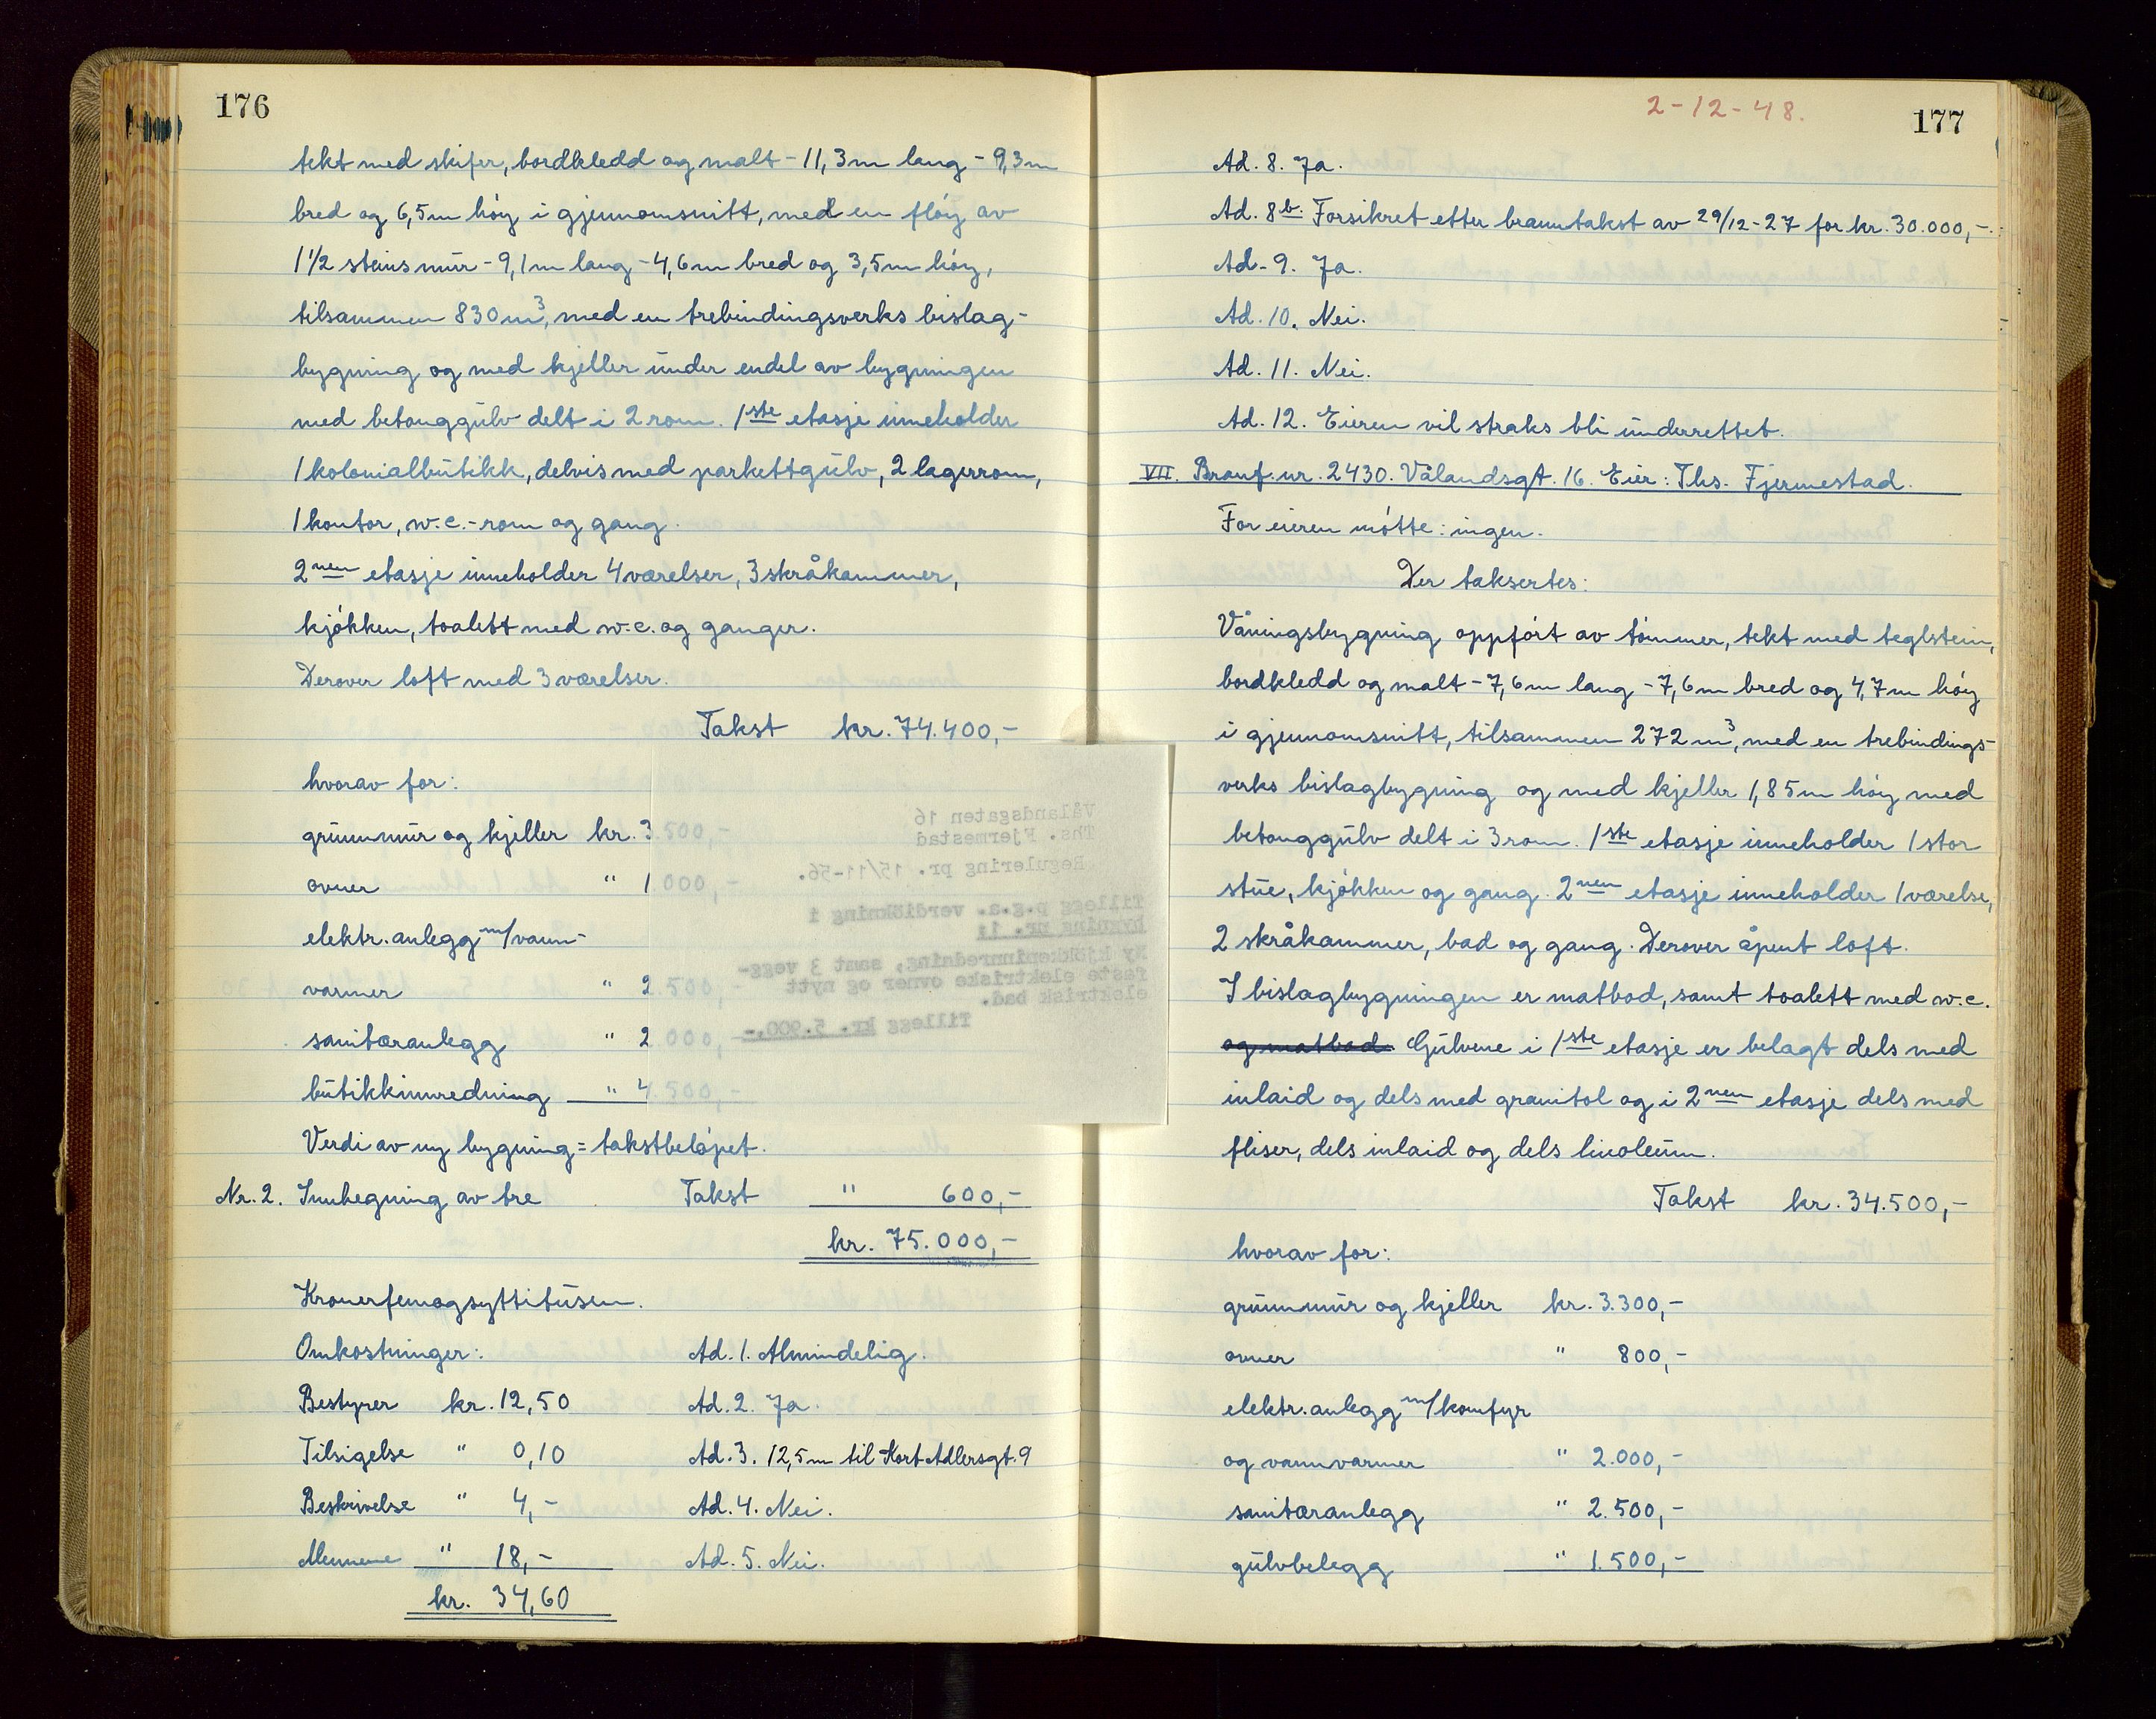 176
tekt med skifer, bordkledd og malt - 11,3 m lang - 9,3 m
bred og 6,5 m høy i gjennomsnitt, med en fløy av
1 1/2 steins mur - 9,1 m lang - 4,6 m bred og 3,5 m høy,
tilsammen 830 m³, med en trebindingsverks bislag-
bygning og med kjeller under endel av bygningen
med betonggulv delt i 2 rom. 1ste etasje inneholder
1 kolonialbutikk, delvis med parkettgulv, 2 lagerrom,
1 kontor, w.c.-rom og gang.
2nen etasje inneholder 4 værelser, 3 skråkammer,
kjøkken, toalett med w.c. og ganger.
Derover loft med 3 værelser.
Takst kr. 74.400,-
hvorav for:
grunnmur og kjeller kr. 3.500,-
ovner " 1.000,-
elektr. anlegg m/vann-
varmer " 2.500,-
sanitæranlegg " 2.000,-
butikkinnredning " 4.500,-
Verdi av ny bygning = takstbeløpet.
Nr. 2. Innhegning av tre Takst " 600,-
kr. 75.000,-
Kronerfemogsyttitusen.
Omkostninger:
Bestyrer kr. 12,50
Tilsigelse " 0,10
Beskrivelse " 4,-
Mennene " 18,-
kr. 34,60
Ad. 1. Almindelig.
Ad. 2. Ja.
Ad. 3. 12,5 m til Kort Adlersgt. 9
Ad. 4. Nei.
Ad. 5. Nei.
Vålandsgaten 16
Ths. Fjermestad
Regulering pr. 15/11-56.
Tillegg p.g.a. verdiökning i
bygning nr. 1:
Ny kjökkeninnredning, samt 3 vegg-
faste elektriske ovner og nytt
elektrisk bad.
Tillegg kr. 5.900,-
2-12-48.
177
Ad. 8. Ja.
Ad. 8b. Forsikret etter branntakst av 29/12-27 for kr. 30.000,-.
Ad. 9. Ja.
Ad. 10. Nei.
Ad. 11. Nei.
Ad. 12. Eieren vil straks bli underrettet.
VII. Branf. nr. 2430. Vålandsgt. 16. Eier: Ths. Fjermestad.
For eieren møtte: ingen.
Der taksertes:
Våningsbygning oppført av tømmer, tekt med teglstein,
bordkledd og malt - 7,6 m lang - 7,6 m bred og 4,7 m høy
i gjennomsnitt, tilsammen 272 m³, med en trebindings-
verks bislagbygning og med kjeller 1,85 m høy med
betonggulv delt i 3 rom. 1ste etasje inneholder 1 stor
stue, kjøkken og gang. 2nen etasje inneholder 1 værelse,
2 skråkammer, bad og gang. Derover åpent loft.
I bislagbygningen er matbod, samt toalett med w.c.
og matbod. Gulvene i 1ste etasje er belagt dels med
inlaid og dels med granitol og i 2nen etasje dels med
fliser, dels inlaid og dels linoleum.
Takst kr. 34.500,-
hvorav for:
grunnmur og kjeller kr. 3.300,-
ovner " 800,-
elektr. anlegg m/komfyr
og vannvarmer " 2.000,-
sanitæranlegg " 2.500,-
gulvbelegg " 1.500,-